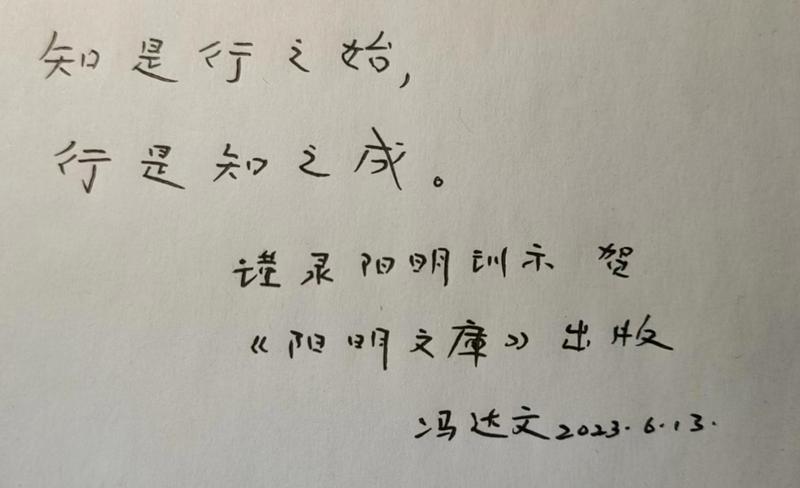 知是行之始,
行是知之成。
谨录阳明训示 贺
《阳明文庫》出版
冯达文2023.6.13.